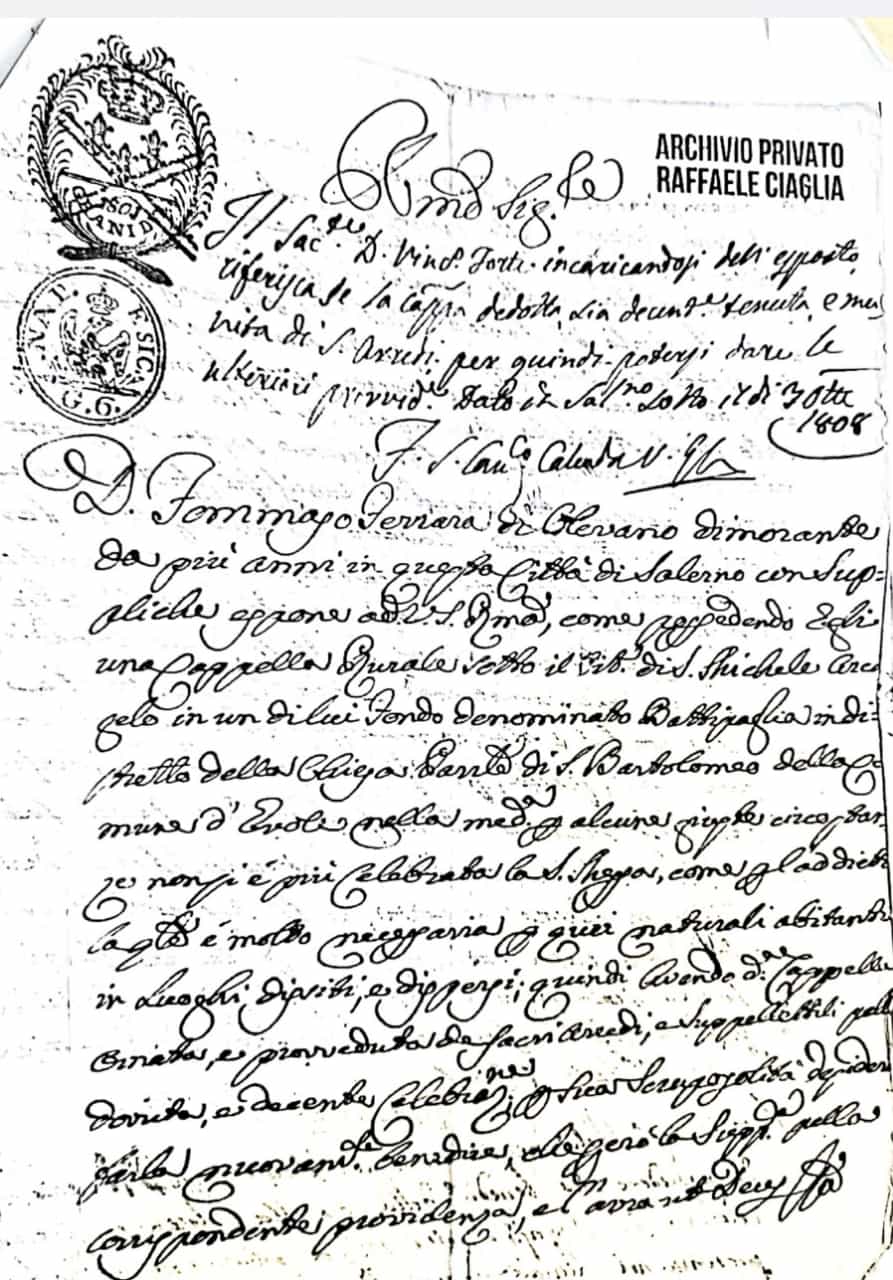 ARCHIVIO PRIVATO
RAFFAELE CIAGLIA
1801
NAP. E SICI.
G. 6.
Rmo Sig.re
Il Sac.te D. Vinc. Forte incaricandosi dell'esposto,
riferisca se la capp.a dedotta, sia decent.e tenuta, e mu
nita di S. Arredi, per quindi potersi dare le
ulteriori provvid.e Dato in Sal.no sotto il dì 3 Ott.e
1808
F. S. Can.co V. G.
D. Tommaso Ferrara di Olevano dimorante
da più anni in questa Città di Salerno con sup=
pliche espone ad V. S. Rma, come possedendo Egli
una Cappella Rurale sotto il tit.o di S. Michele Arca
gelo in un di lui Fondo denominato Battipaglia in di=
stretto della Chiesa Parrle di S. Bartolomeo della Co
mune d'Evoli nella med.a p alcune giuste circostan
ze non si è più celebrata la S. Messa, come p l addiet
la qle è molto necessaria p quei naturali abitanti
in Luoghi dissiti, e dispersi; quindi avendo d.a Cappella
Ornata, e proveduta de Sacri Arredi, e Suppellettili pella
dovuta, e decente Celebraz.ne p sua Scruposolità desider
farla nuovam.te benedire, che perciò la Supp.a pella
corrispondente providenza, e l'avrà ut Deus